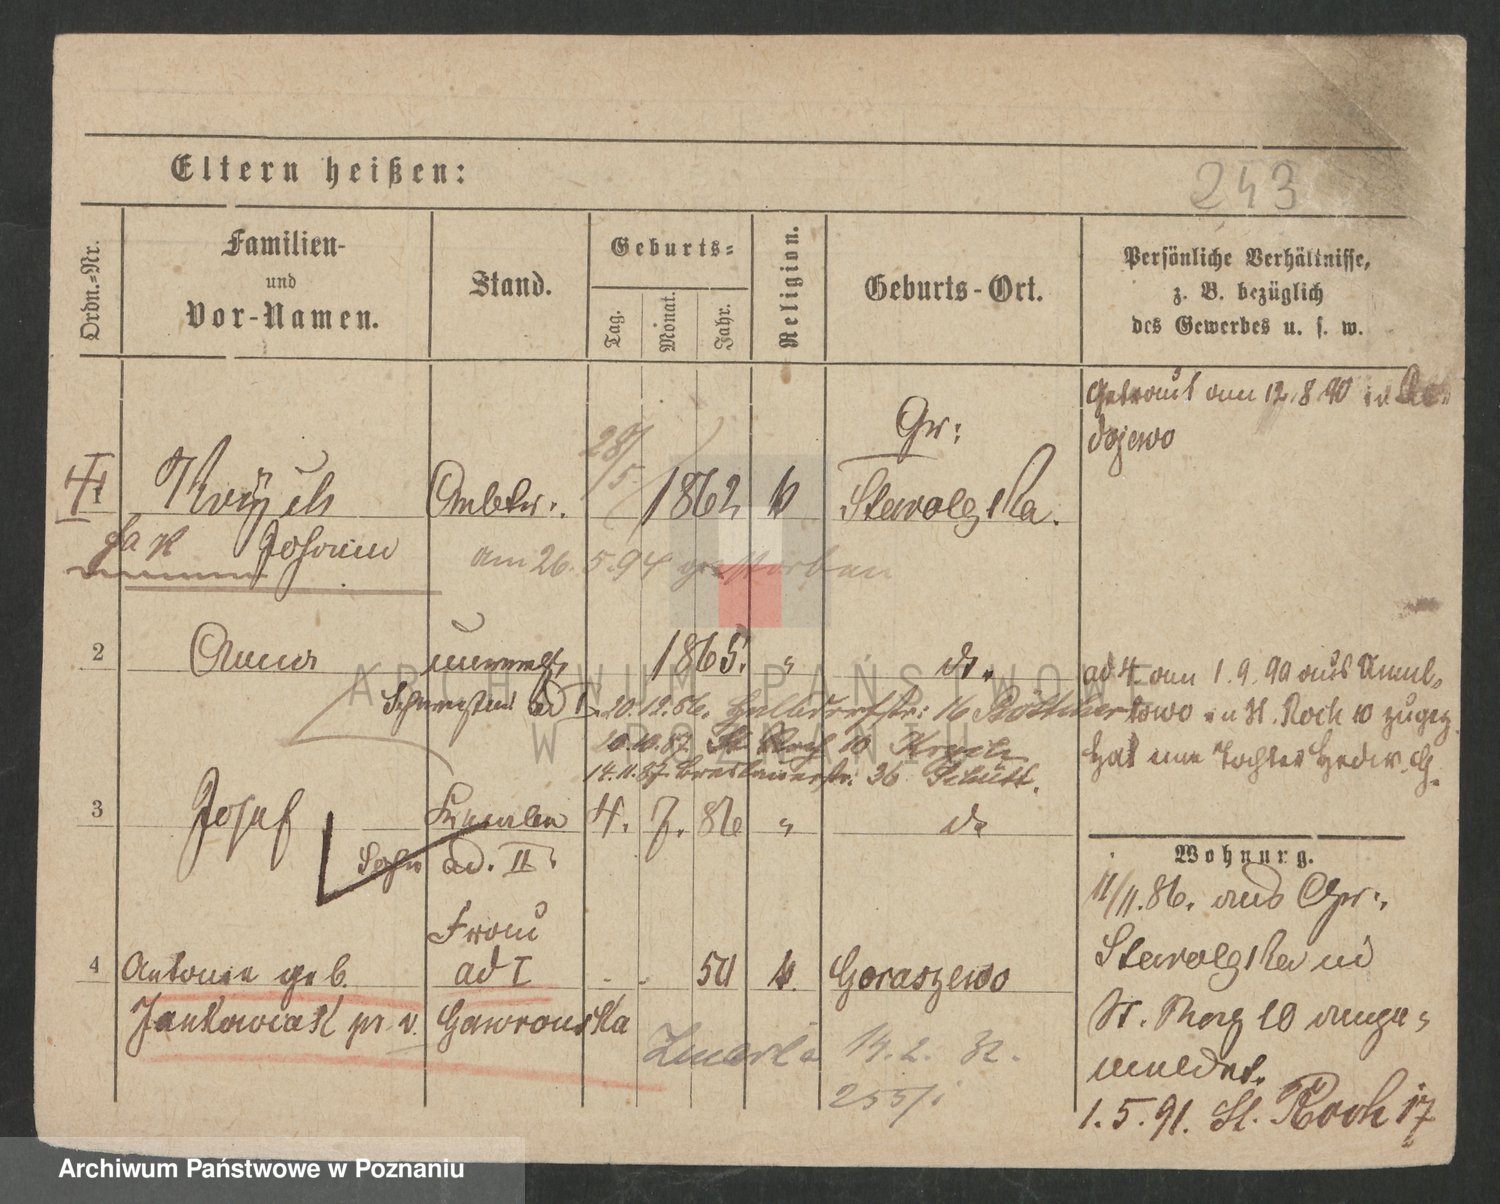 243
Eltern heißen:
Ordn.-Nr.
Familien-
und
Vor-Namen.
Stand.
Geburts-
Tag.
Monat.
Jahr.
Religion.
Geburts-Ort.
Persönliche Verhältnisse,
z. B. bezüglich
des Gewerbes u. s. w.
Getraut am 12.8.90 in
dojewo
Gr:
28/5. 1862 k
Stawolgska.
Johann
am 26.5.94 gestorben
2 Anna unverehl. 1865. " do.
Schwester ad I
20.12.86. Halbdorfstr: 16
10.10.87 St. Roch 10
14.11.87. Breslauerstr: 36
ad 4 am 1.9.90 aus
in St. Roch 10 zugez.
hat eine Tochter Hedw. G.
3 Josef 4. 7. 86 " do
Sohn ad. II
Wohnung.
11/11.86. aus Gr:
Stawolgska in
St. Roch 10 ange-
meldet.
1.5.91. St. Roch 17
Frau
4 Antonia geb. ad I - - 50 k. Goraszewo
Jankowiak pr. v. Gawronska
Zmarła 14.2. 32.
255/i
ARCHIWUM PAŃSTWOWE
W POZNANIU
Archiwum Państwowe w Poznaniu